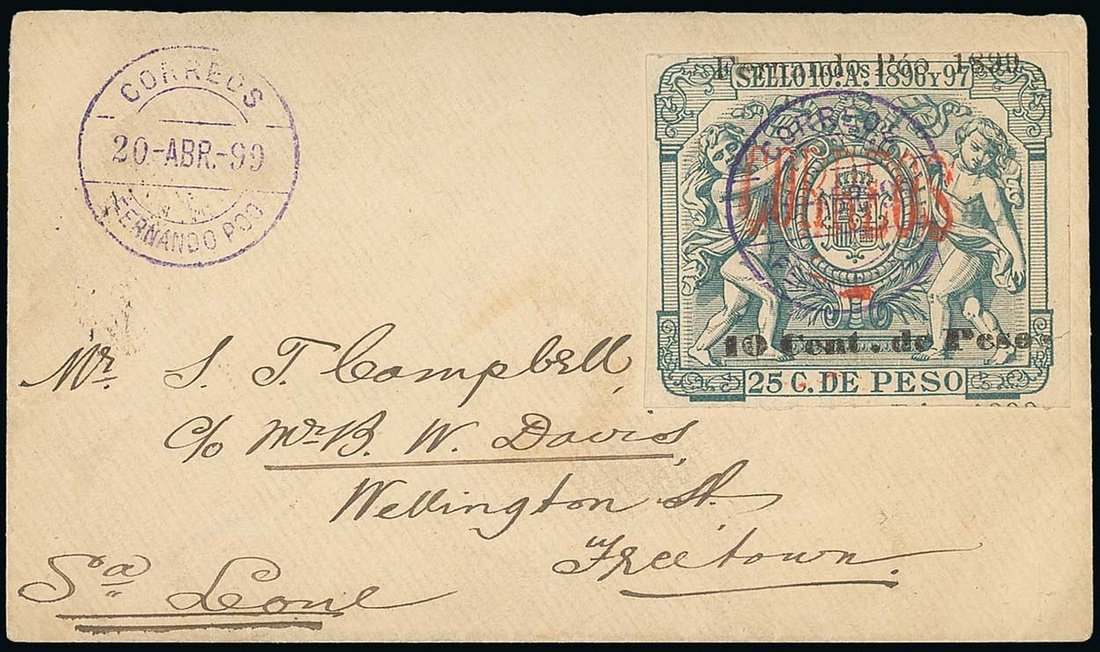 CORREOS
20-ABR.-99
FERNANDO POO
Fernando Póo 1899
SELLO 10º. A.S 1896 Y 97
CORREOS
CORREOS
10 Cent. de Peso
25 C. DE PESO
Mr. S. T. Campbell,
c/o Mr B. W. Davis,
Wellington St.
Freetown.
Sa Leone